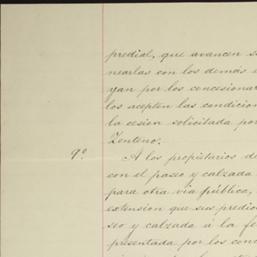 predial, que avancen s
nearlas con los demás
yan por los concesionar
los acepten las condicion
la cesion solicitada por
Zenteno.
9º A los propietarios de
con el paseo y calzada
para otra via pública,
extension que sus predio
seo y calzada á la fe
presentada por los conc